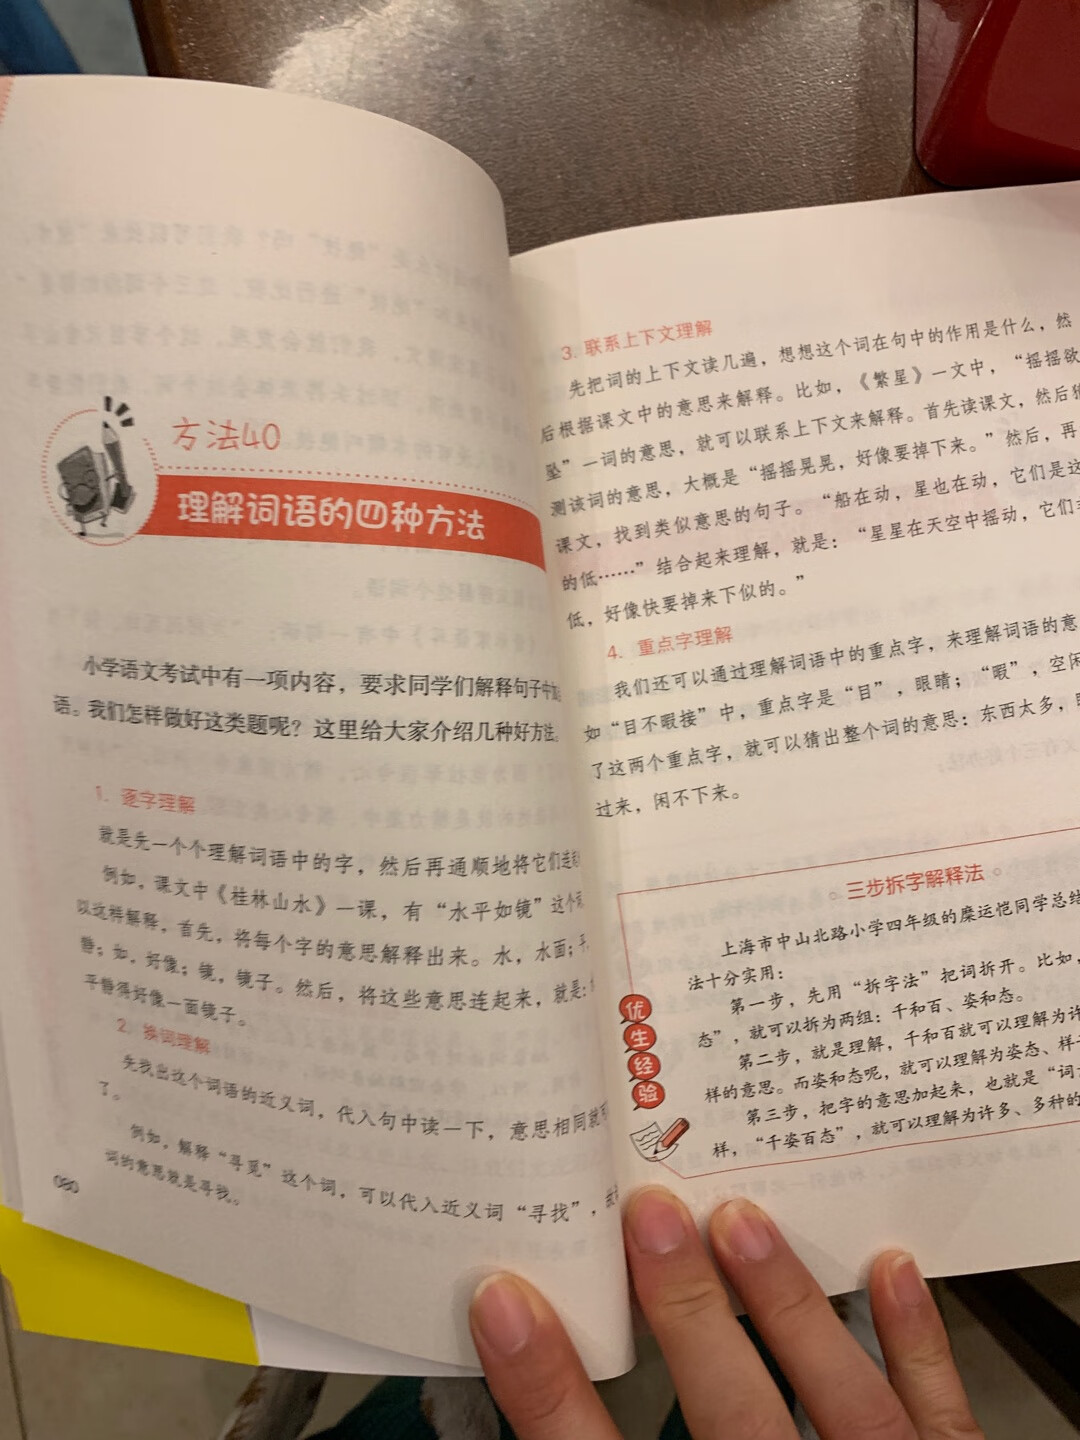 方法40
理解词语的四种方法
小学语文考试中有一项内容，要求同学们解释句子中
语。我们怎样做好这类题呢？这里给大家介绍几种好方法。
1. 逐字理解
就是先一个个理解词语中的字，然后再通顺地将它们连
例如，课文中《桂林山水》一课，有“水平如镜”这个
以这样解释，首先，将每个字的意思解释出来。水，水面；平，
静；如，好像；镜，镜子。然后，将这些意思连起来，就是：
平静得好像一面镜子。
2. 换词理解
先找出这个词语的近义词，代入句中读一下，意思相同就
了。
例如，解释“寻觅”这个词，可以代入近义词“寻找”，
词的意思就是寻找。
080
3. 联系上下文理解
先把词的上下文读几遍，想想这个词在句中的作用是什么，然
后根据课文中的意思来解释。比如，《繁星》一文中，“摇摇欲
坠”一词的意思，就可以联系上下文来解释。首先读课文，然后猜
测该词的意思，大概是“摇摇晃晃，好像要掉下来。”然后，再
课文，找到类似意思的句子。“船在动，星也在动，它们是这
的低……”结合起来理解，就是：“星星在天空中摇动，它们
低，好像快要掉来下似的。”
4. 重点字理解
我们还可以通过理解词语中的重点字，来理解词语的意
如“目不暇接”中，重点字是“目”，眼睛；“暇”，空闲
了这两个重点字，就可以猜出整个词的意思：东西太多，
过来，闲不下来。
三步拆字解释法
上海市中山北路小学四年级的糜运恺同学总结
法十分实用：
第一步，先用“拆字法”把词拆开。比如，
态”，就可以拆为两组：千和百、姿和态。
第二步，就是理解，千和百就可以理解为许
样的意思。而姿和态呢，就可以理解为姿态、样
第三步，把字的意思加起来，也就是“词
样，“千姿百态”，就可以理解为许多、多种的
优生经验